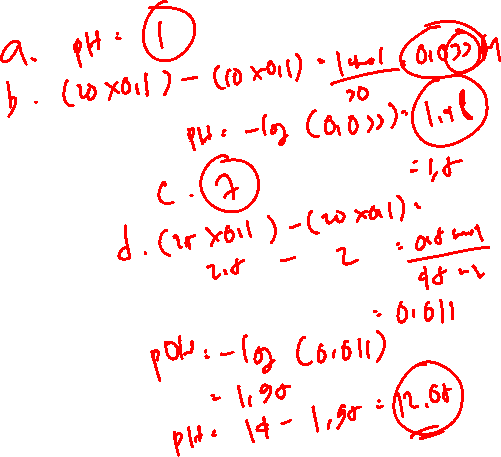 a. pH = 1
b. (20 x 0,1) - (10 x 0,1) = 1 mmol / 30 = 0,033 M
pH = -log (0,033) = 1,48
= 1,5
c. 7
d. (25 x 0,1) - (20 x 0,1) =
2.5 - 2 = 0,5 mmol / 45
= 0,011
pOH = -log (0,011)
= 1,95
pH = 14 - 1,95 = 12.05